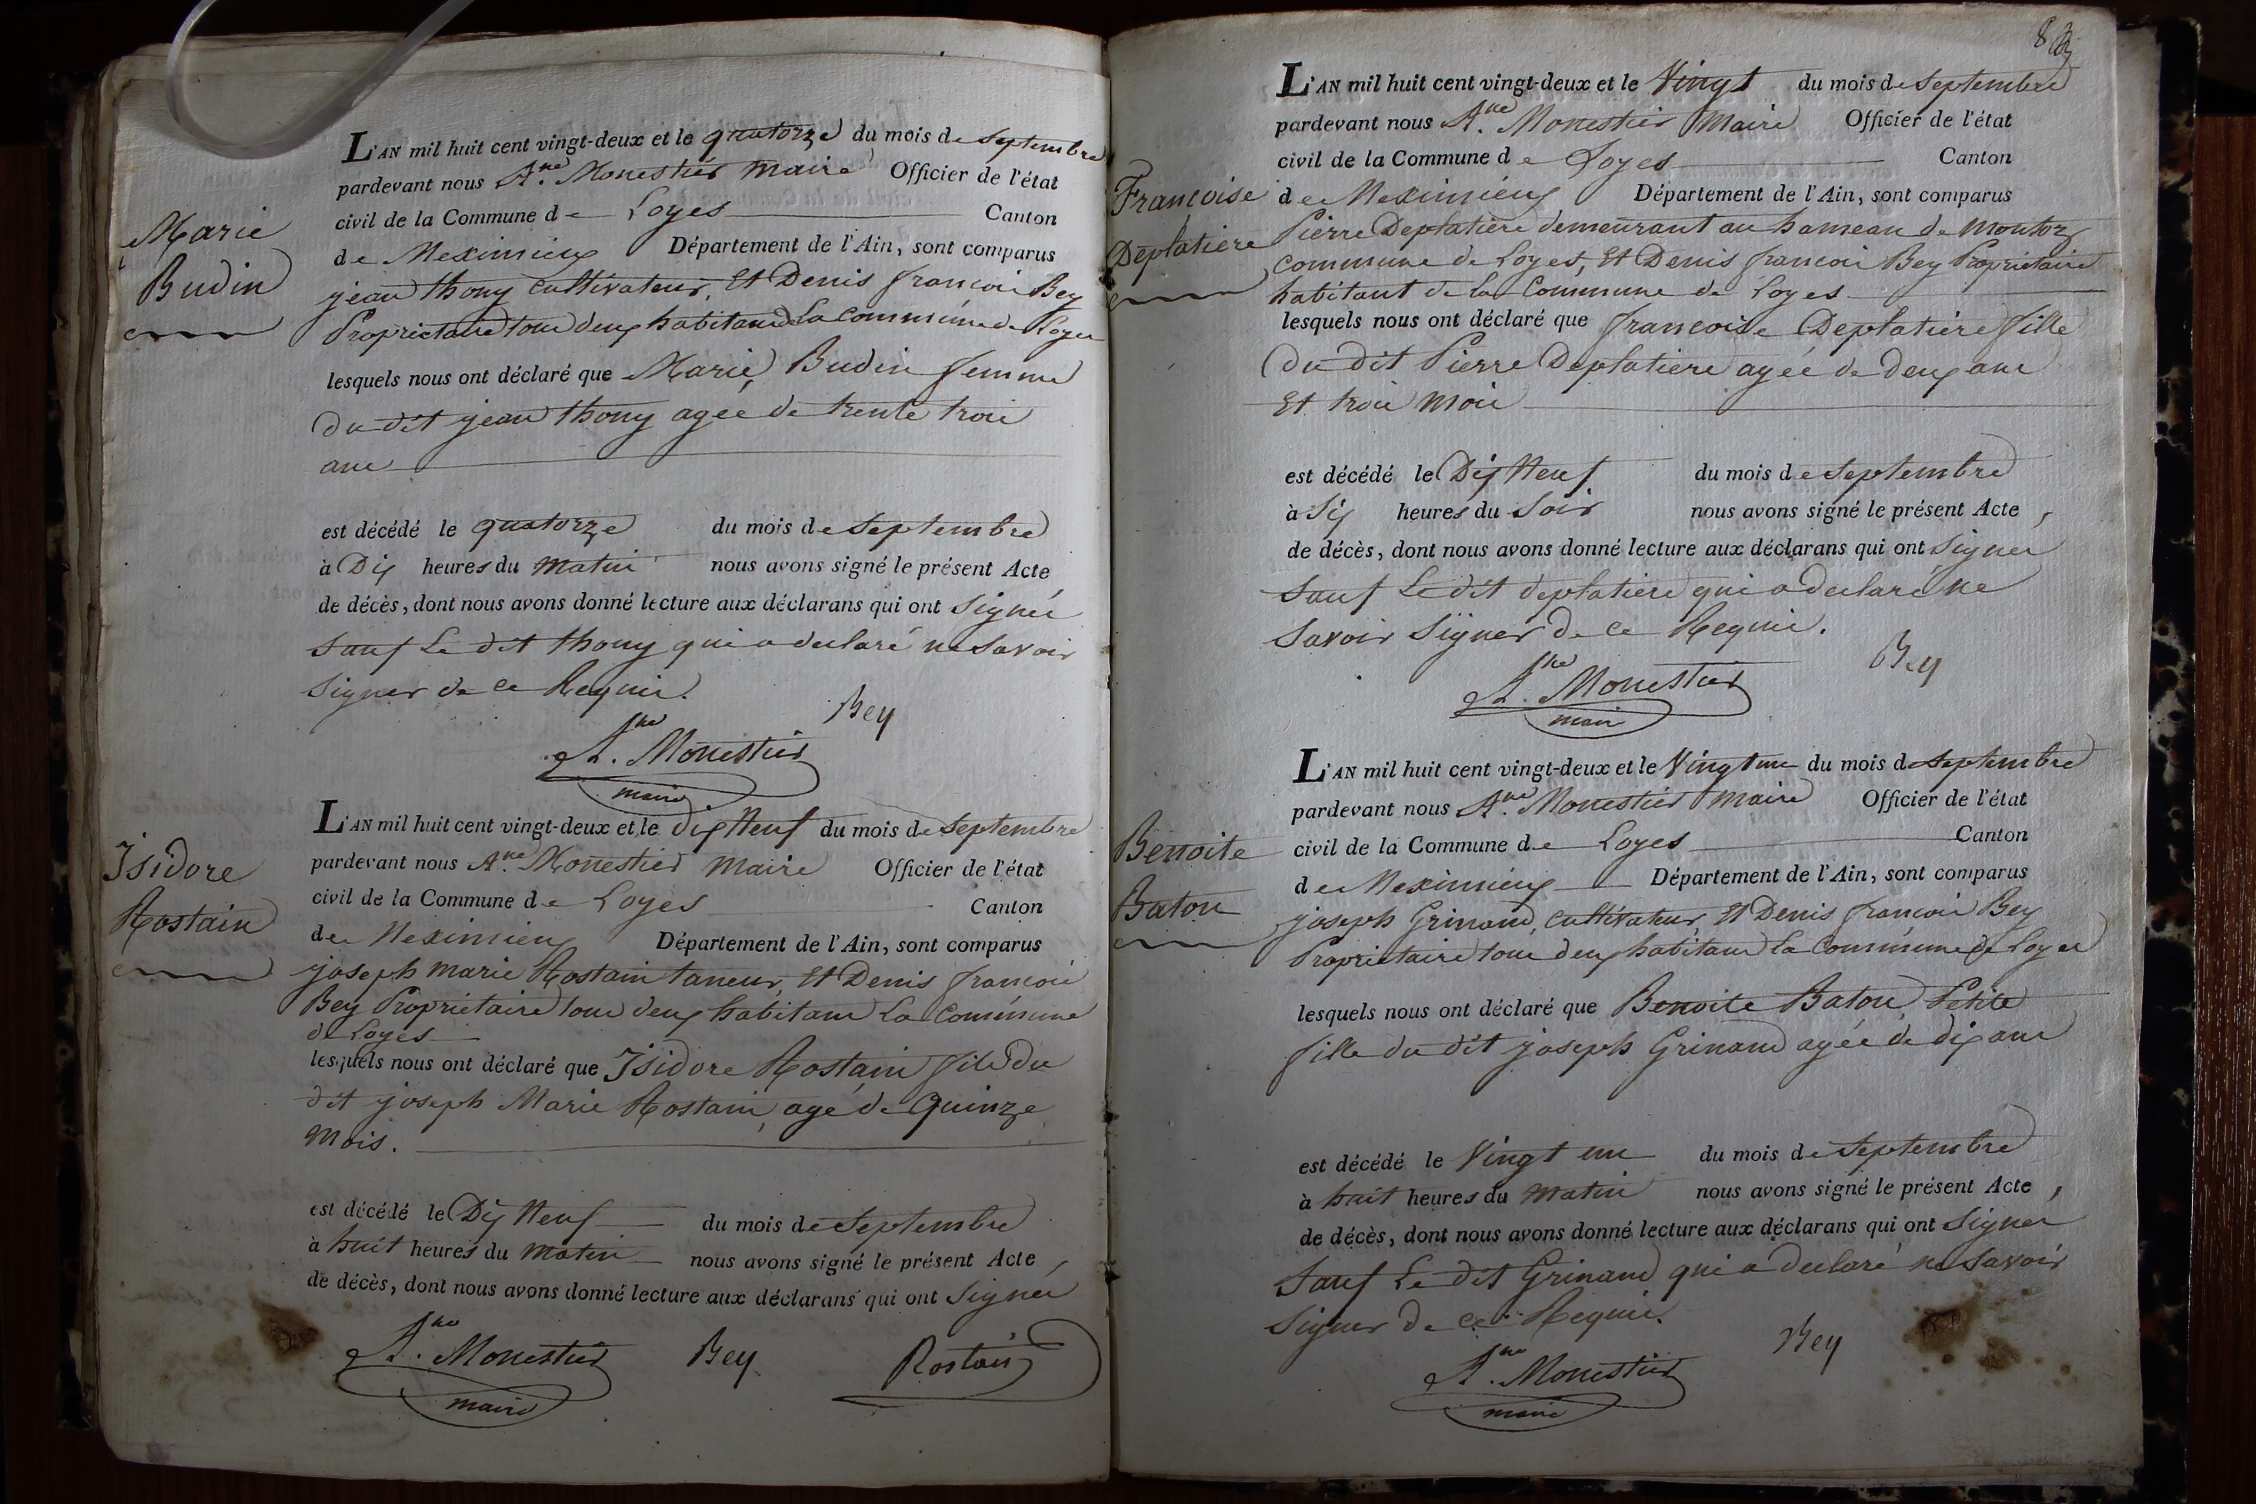 Marie
Budin
L'AN mil huit cent vingt-deux et le quatorze du mois de septembre
pardevant nous A.ne Monestier maire Officier de l'état
civil de la Commune de Loyes Canton
de Meximieux Département de l'Ain, sont comparus
jean thony cultivateur, Et Denis francois Bey
Proprietaire tous deux habitans La Commune de Loyes
lesquels nous ont déclaré que Marie Budin femme
du dit jean thony agée de trente trois
ans
est décédé le quatorze du mois de septembre
à Dix heures du matin nous avons signé le présent Acte
de décès, dont nous avons donné lecture aux déclarans qui ont signés
sauf Le dit thony qui a declaré ne savoir
signer de ce Requis.
Bey
A.ne Monestier
maire
Isidore
Rostain
L'AN mil huit cent vingt-deux et le dix Neuf du mois de septembre
pardevant nous A.ne Monestier maire Officier de l'état
civil de la Commune de Loyes Canton
de Meximieux Département de l'Ain, sont comparus
joseph marie Rostain taneur, Et Denis francois
Bey Proprietaire tous deux habitans La Commune
de Loyes
lesquels nous ont déclaré que Isidore Rostain fils du
dit joseph Marie Rostain, agé de quinze
mois.
est décédé le Dix Neuf du mois de septembre
à huit heures du matin nous avons signé le présent Acte,
de décès, dont nous avons donné lecture aux déclarans qui ont signés
A.ne Monestier Bey Rostain
maire
Francoise
Deplatiere
L'AN mil huit cent vingt-deux et le Vingt du mois de septembre
pardevant nous A.ne Monestier maire Officier de l'état
civil de la Commune de Loyes Canton
de Meximieux Département de l'Ain, sont comparus
Pierre Deplatiere demeurant au hameau de Montorz
commune de Loyes, Et Denis francois Bey Proprietaire
habitant de la Commune de Loyes
lesquels nous ont déclaré que francoise Deplatiére fille
du dit Pierre Deplatiere agée de deux ans
Et trois mois
est décédé le Dix Neuf du mois de septembre
à Six heures du Soir nous avons signé le présent Acte,
de décès, dont nous avons donné lecture aux déclarans qui ont signer
sauf Le dit deplatiere qui a declaré ne
savoir signer de ce Requis.
Bey
A.ne Monestier
maire
Benoite
Baton
L'AN mil huit cent vingt-deux et le Vingt un du mois de septembre
pardevant nous A.ne Monestier maire Officier de l'état
civil de la Commune de Loyes Canton
de Meximieux Département de l'Ain, sont comparus
joseph Grinand, cultivateur, Et Denis francois Bey
Proprietaire tous deux habitans La Commune de Loyes
lesquels nous ont déclaré que Benoite Baton, Petite
fille du dit joseph Grinand agée de dix ans
est décédé le Vingt un du mois de septembre
à huit heures du matin nous avons signé le présent Acte,
de décès, dont nous avons donné lecture aux déclarans qui ont signer
sauf Le dit Grinand qui a declaré ne savoir
signer de ce Requis.
Bey
A.ne Monestier
maire